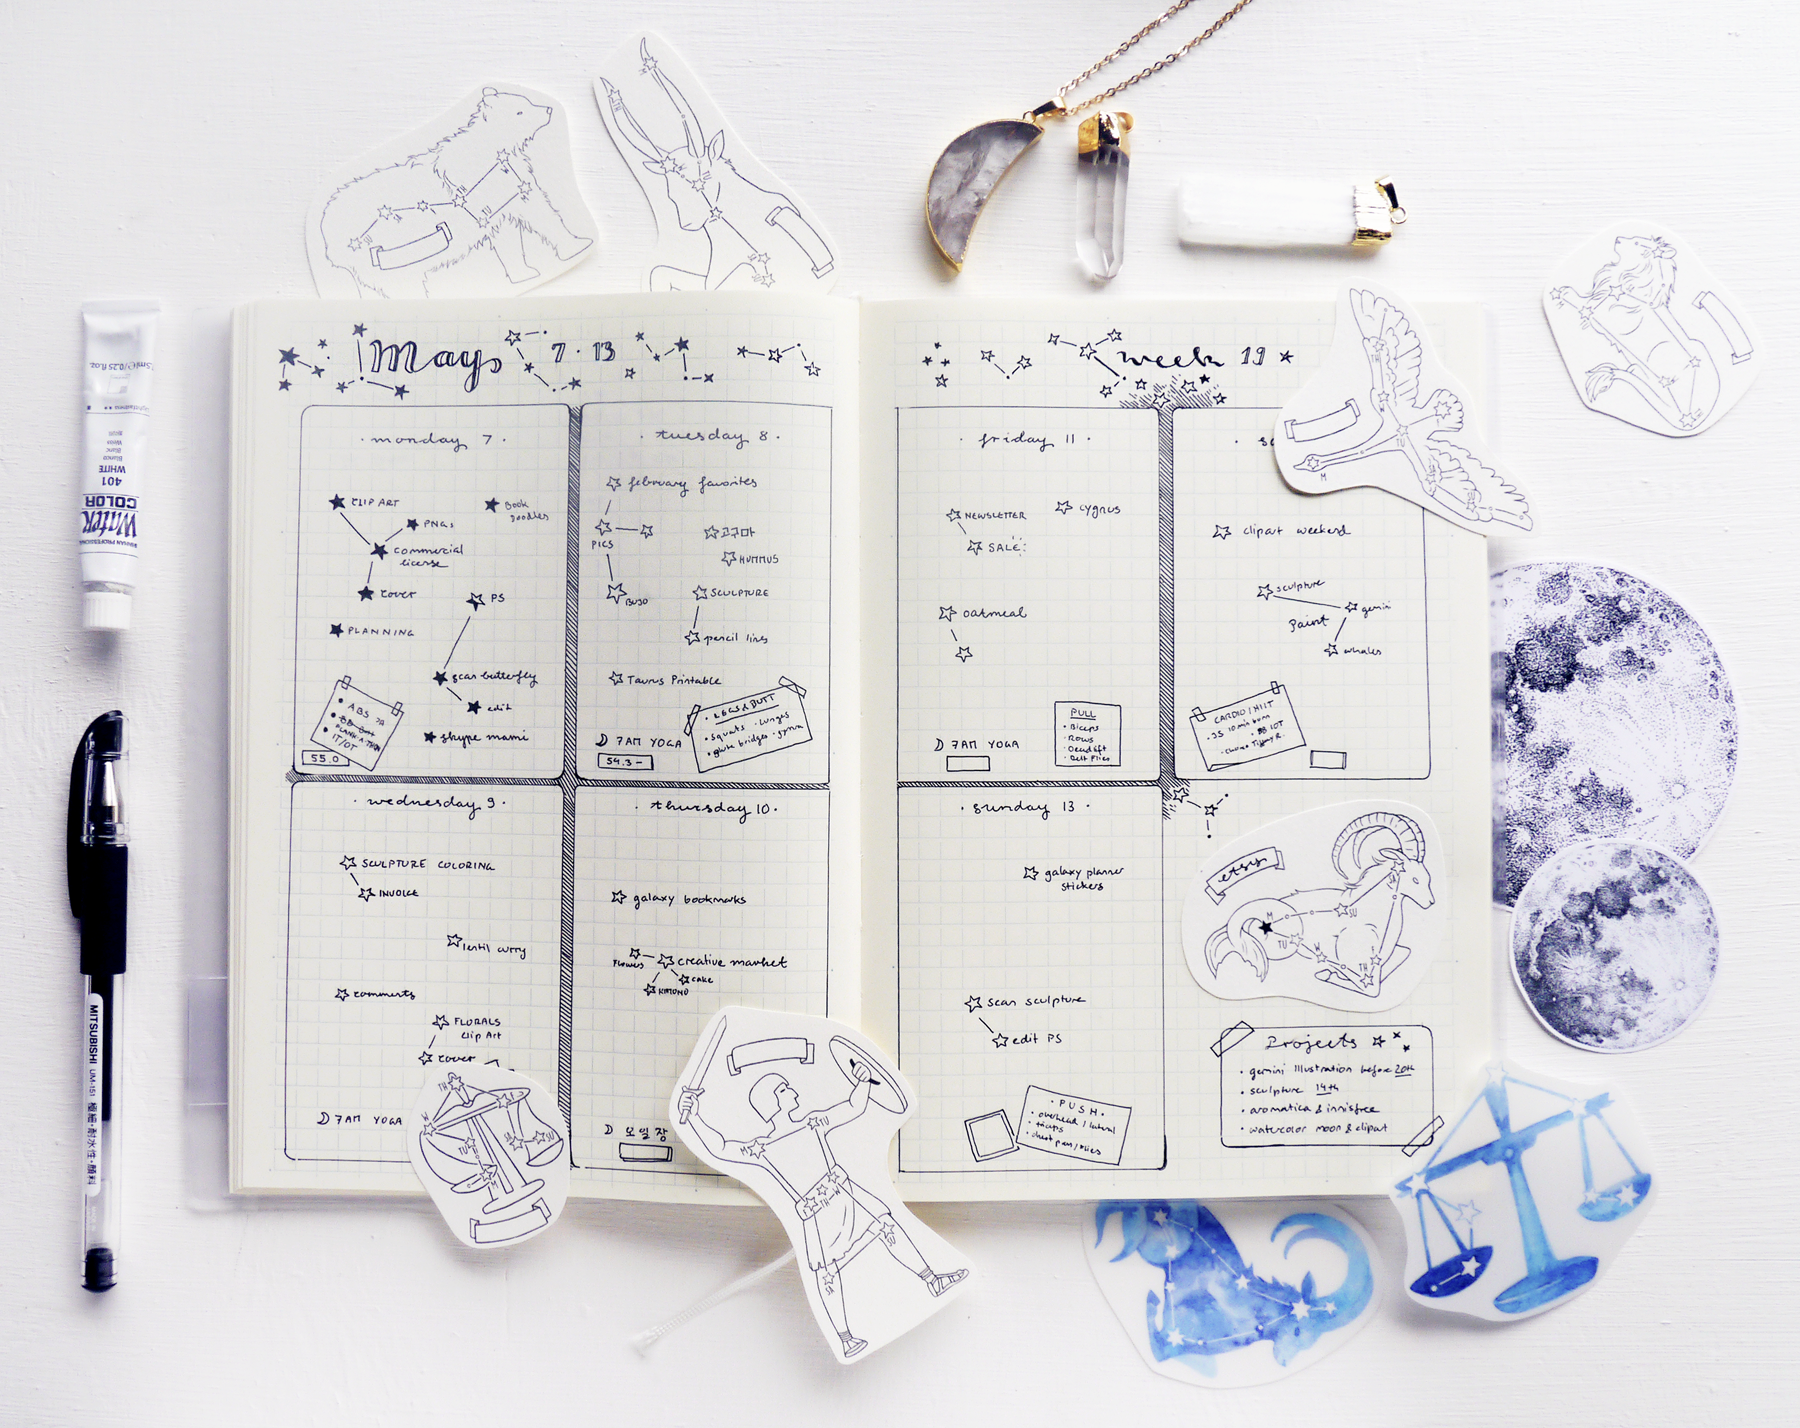 May
7 · 13
week 19
· monday 7 ·
CLIP ART
Book
Doodles
PNGs
commercial
license
cover
PS
PLANNING
scan butterfly
edit
skype mami
ABS
IT/OT
55.0
· tuesday 8 ·
february favorites
PICS
고구마
HUMMUS
BUJO
SCULPTURE
pencil lines
Taurus Printable
7AM YOGA
54.3 -
LEGS & BUTT
· Squats · Lunges
glute bridges
· wednesday 9 ·
SCULPTURE COLORING
INVOICE
lentil curry
comments
FLORALS
Clip Art
cover
7AM YOGA
· thursday 10 ·
galaxy bookmarks
Flowers
creative market
cake
KIMONO
오일장
· friday 11 ·
NEWSLETTER
cygnus
SALE
oatmeal
7AM YOGA
PULL
· Biceps
· Rows
· Deadlift
· Delt Flies
clipart weekend
sculpture
gemini
Paint
whales
CARDIO/HIIT
· 35 10min burn
· sunday 13 ·
galaxy planner
stickers
scan sculpture
edit PS
· PUSH ·
· overhead / lateral
· triceps
etsy
Projects
· gemini Illustration before 20th
· sculpture 14th
· aromatica & innisfree
· watercolor moon & clipart
WATER
COLOR
401
WHITE
MITSUBISHI UM-151 極細・耐水性・顔料